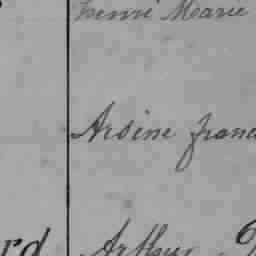 Henri Marie
Arsène franc
rd Arthur